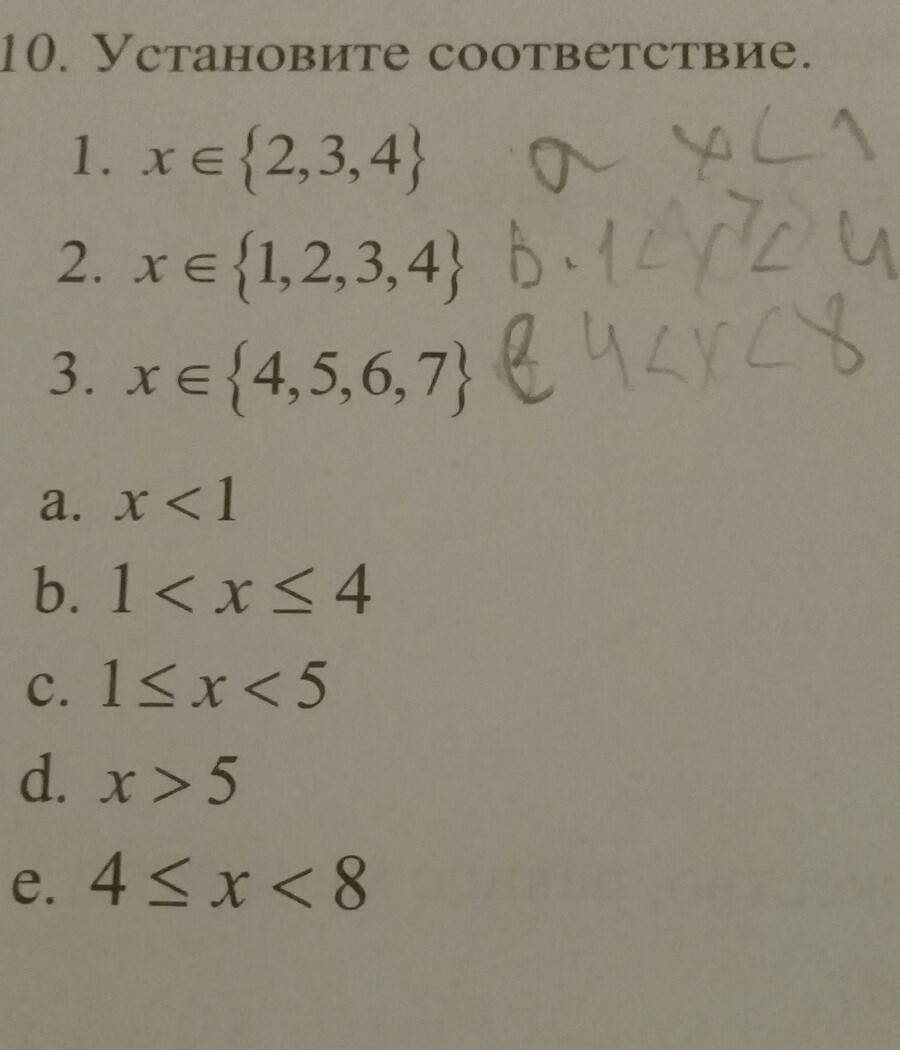 10. Установите соответствие.
1. x ∈ {2, 3, 4} a x < 1
2. x ∈ {1, 2, 3, 4} b. 1 < x < 4
3. x ∈ {4, 5, 6, 7} e 4 < x < 8
a. x < 1
b. 1 < x ≤ 4
c. 1 ≤ x < 5
d. x > 5
e. 4 ≤ x < 8